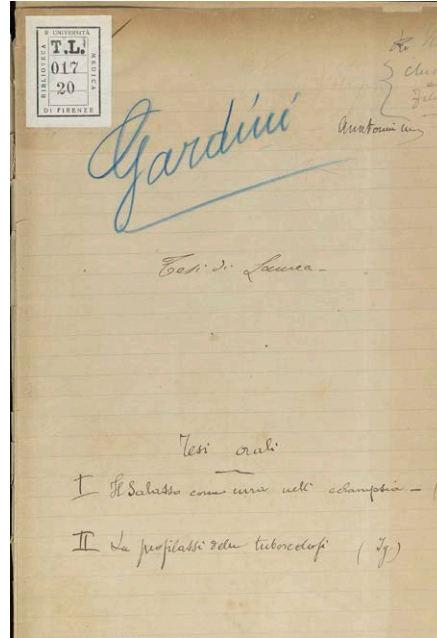 R. UNIVERSITÀ
BIBLIOTECA
MEDICA
DI FIRENZE
T.L.
017
20
Anatomica
Gardini
Tesi di Laurea -
Tesi orali
I Il Salasso come cura nell' eclampsia - (
II La profilassi della tubercolosi ( Ig.)